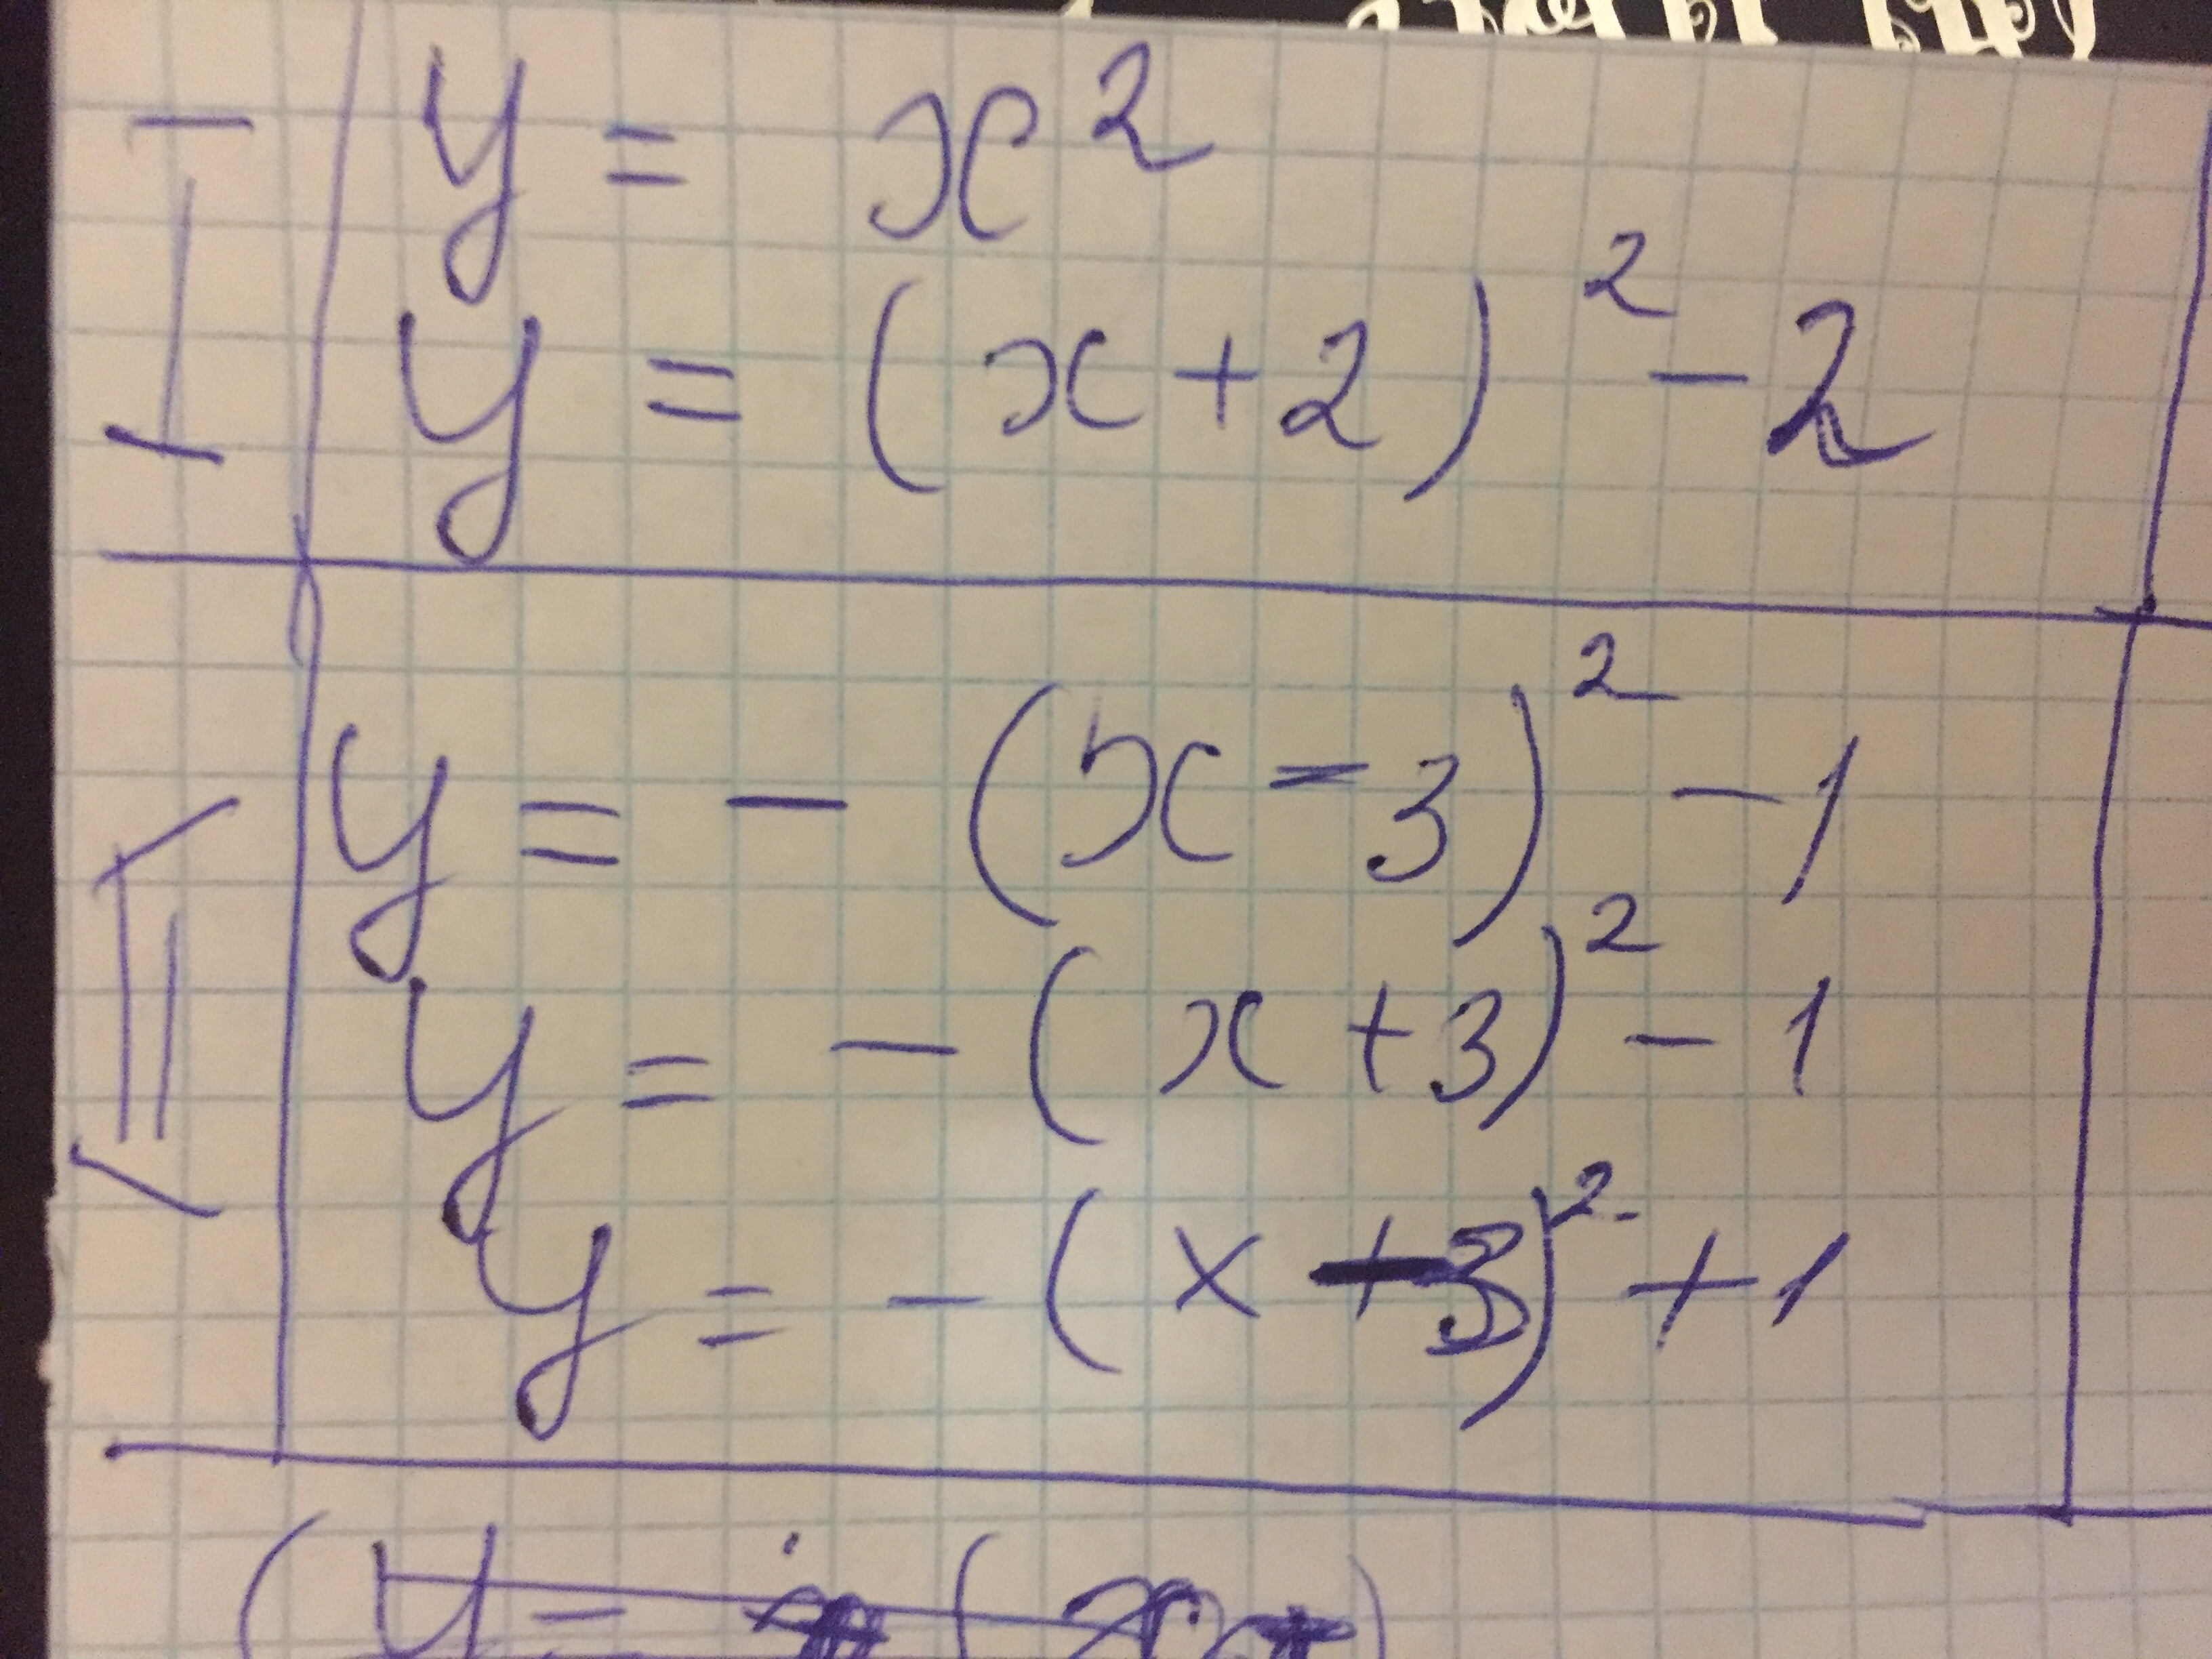 I
y = x²
y = (x+2)² - 2
II
y = - (x - 3)² - 1
y = - (x + 3)² - 1
y = - (x + 3)² + 1